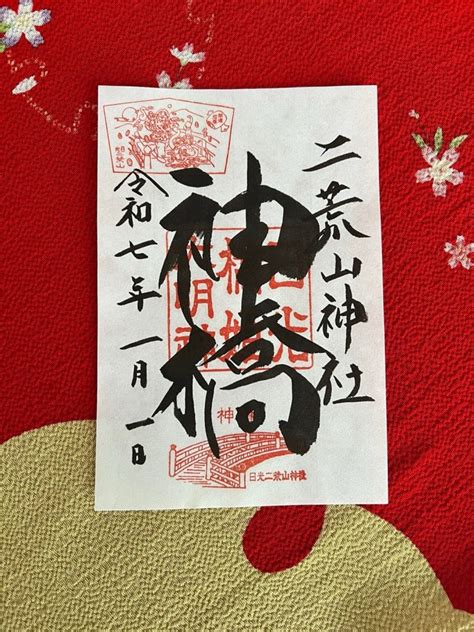 二荒山神社
神橋
令和七年一月一日
神
日光二荒山神社